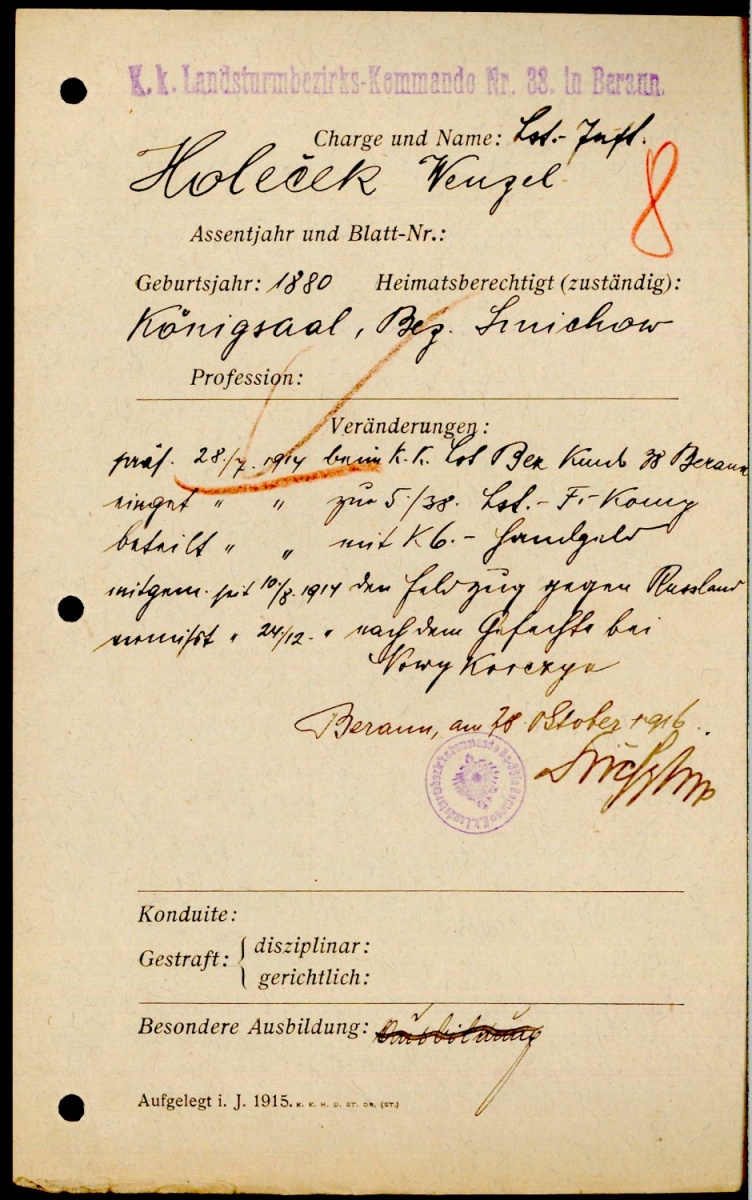 K. k. Landsturmbezirks-Kommando Nr. 38. in Beraun.
Charge und Name: Lst.- Inft.
Holeček Wenzel
8
Assentjahr und Blatt-Nr.:
Geburtsjahr: 1880 Heimatsberechtigt (zuständig):
Königsaal, Bez. Smichow
Profession:
Veränderungen:
präs. 28./7. 1914 beim K. K. Lst Bez Kmdo 38 Beraun
einget " " zur 5./38. Lst.- F.- Komp
beteilt " " mit K 6.- Handgeld
mitgem. seit 10./8. 1914 den Feldzug gegen Russland
vermißt " 24/12. " nach dem Gefechte bei
Nowy Korczyn
Beraun, am 28. Oktober 1916.
Konduite:
Gestraft: disziplinar:
gerichtlich:
Besondere Ausbildung: Ausbildung
Aufgelegt i. J. 1915. K. K. H. U. ST. DR. (ST.)